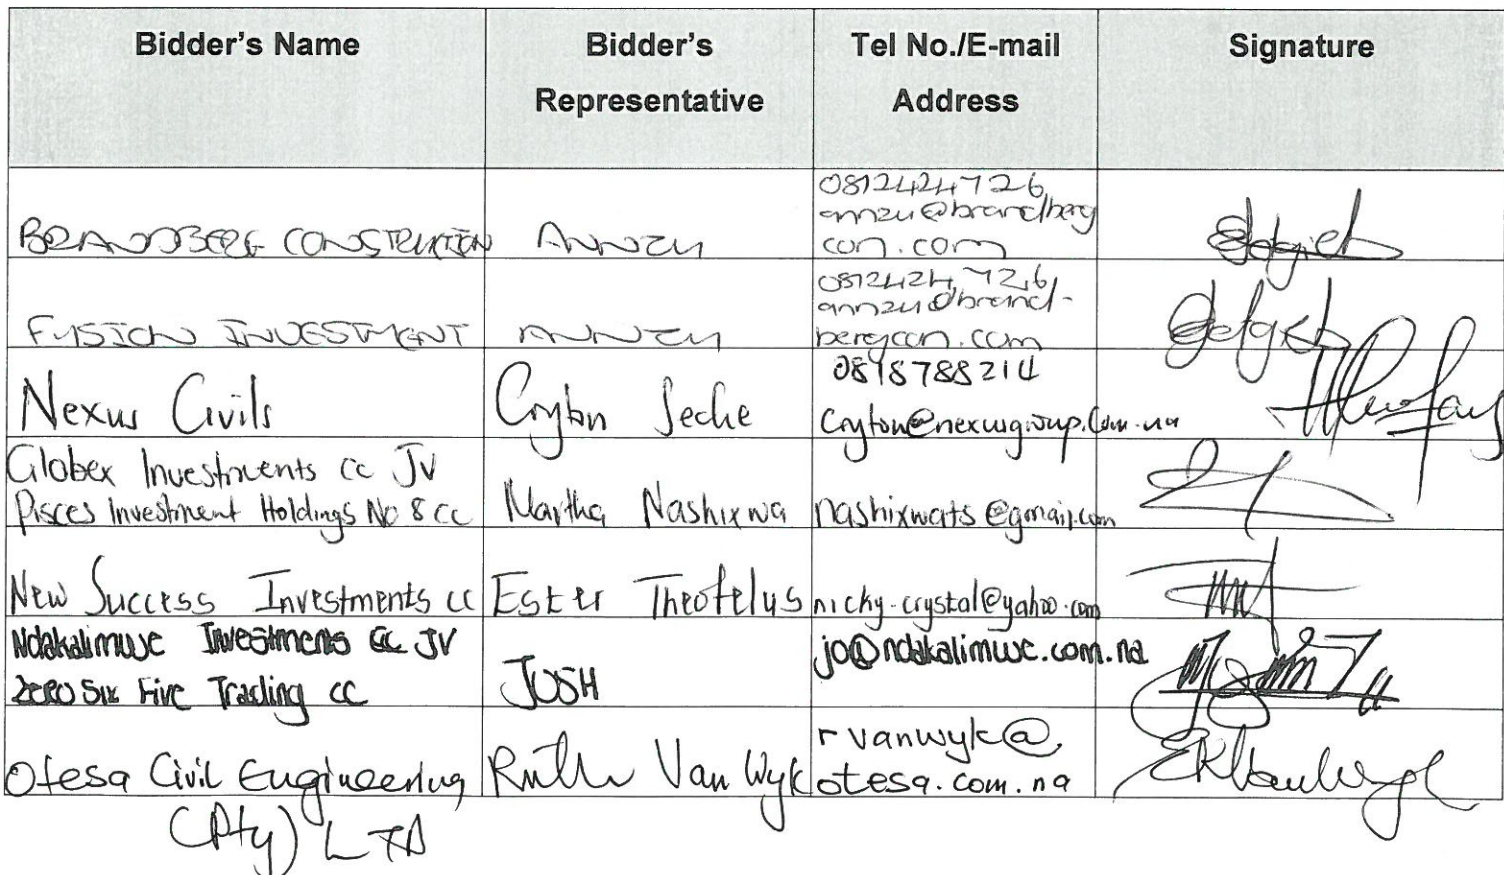 Bidder's Name
Bidder's
Representative
Tel No./E-mail
Address
Signature
BRANDBERG CONSTRUKTION
ANNZU
0812424726
annzu@brandberg
con.com
FUSION INVESTMENT
ANNZU
0812424726
annzu@brand-
bergcon.com
Nexus Civils
Cryton Seche
0818788214
Cryton@nexusgroup.com.na
Globex Investments cc JV
Pisces Investment Holdings No 8 cc
Martha Nashixwa
nashixwats@gmail.com
New Success Investments cc
Ester Theofelus
nicky-crystal@yahoo.com
Ndakalimuwe Investments cc JV
Zero Six Five Trading cc
JOSH
jo@ndakalimuwe.com.na
Otesa Civil Engineering
(Pty) LTD
Ruth Van Wyk
rvanwyk@
otesa.com.na